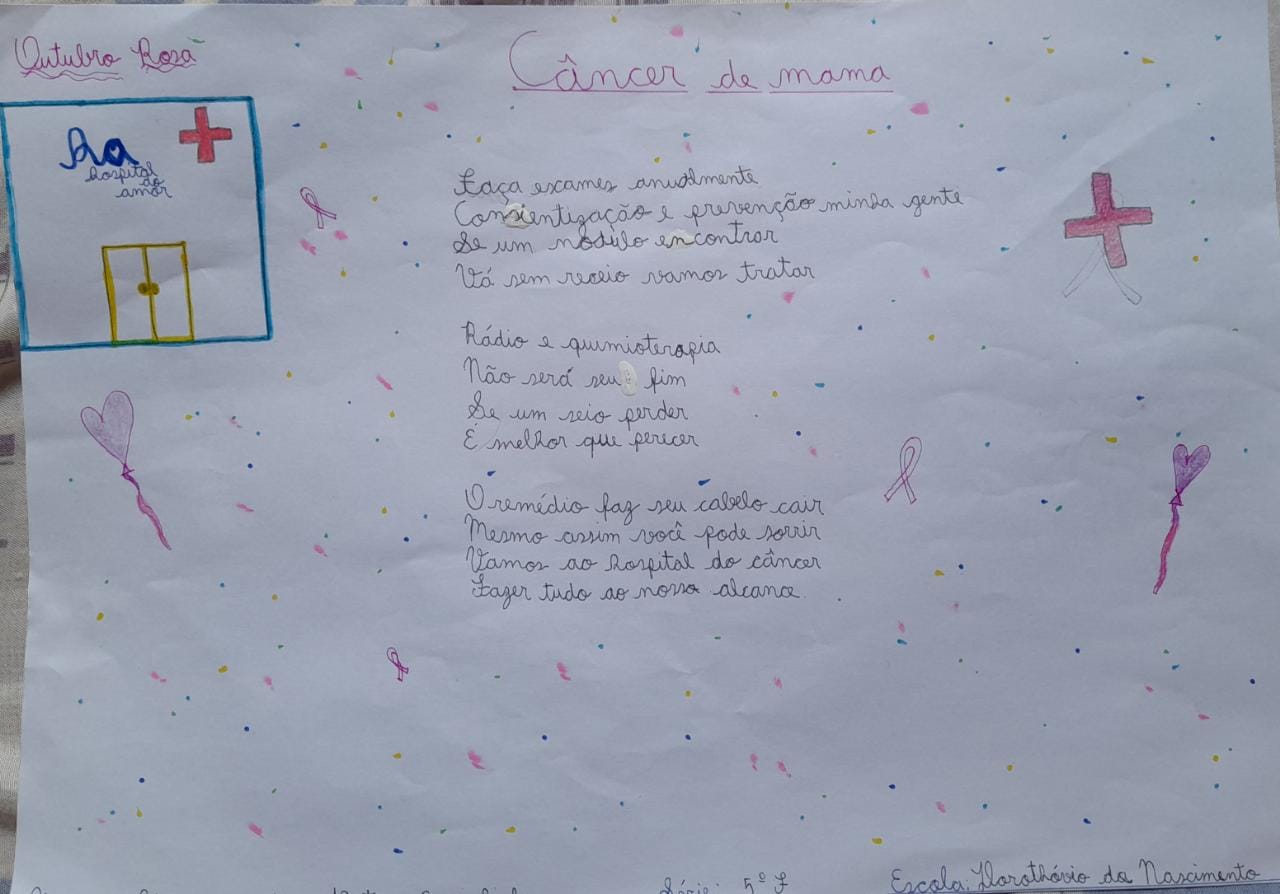 Outubro Rosa
Câncer de mama
Ha
hospital
do
amor
Faça exames anualmente
Consientização e prevenção minha gente
Se um nódulo encontrar
Vá sem receio vamos tratar
Rádio e quimioterapia
Não será seu fim
Se um seio perder
É melhor que perecer
O remédio faz seu cabelo cair
Mesmo assim você pode sorrir
Vamos ao hospital do câncer
Fazer tudo ao nosso alcance.
Série: 5º F
Escola: Dorothóvio do Nascimento